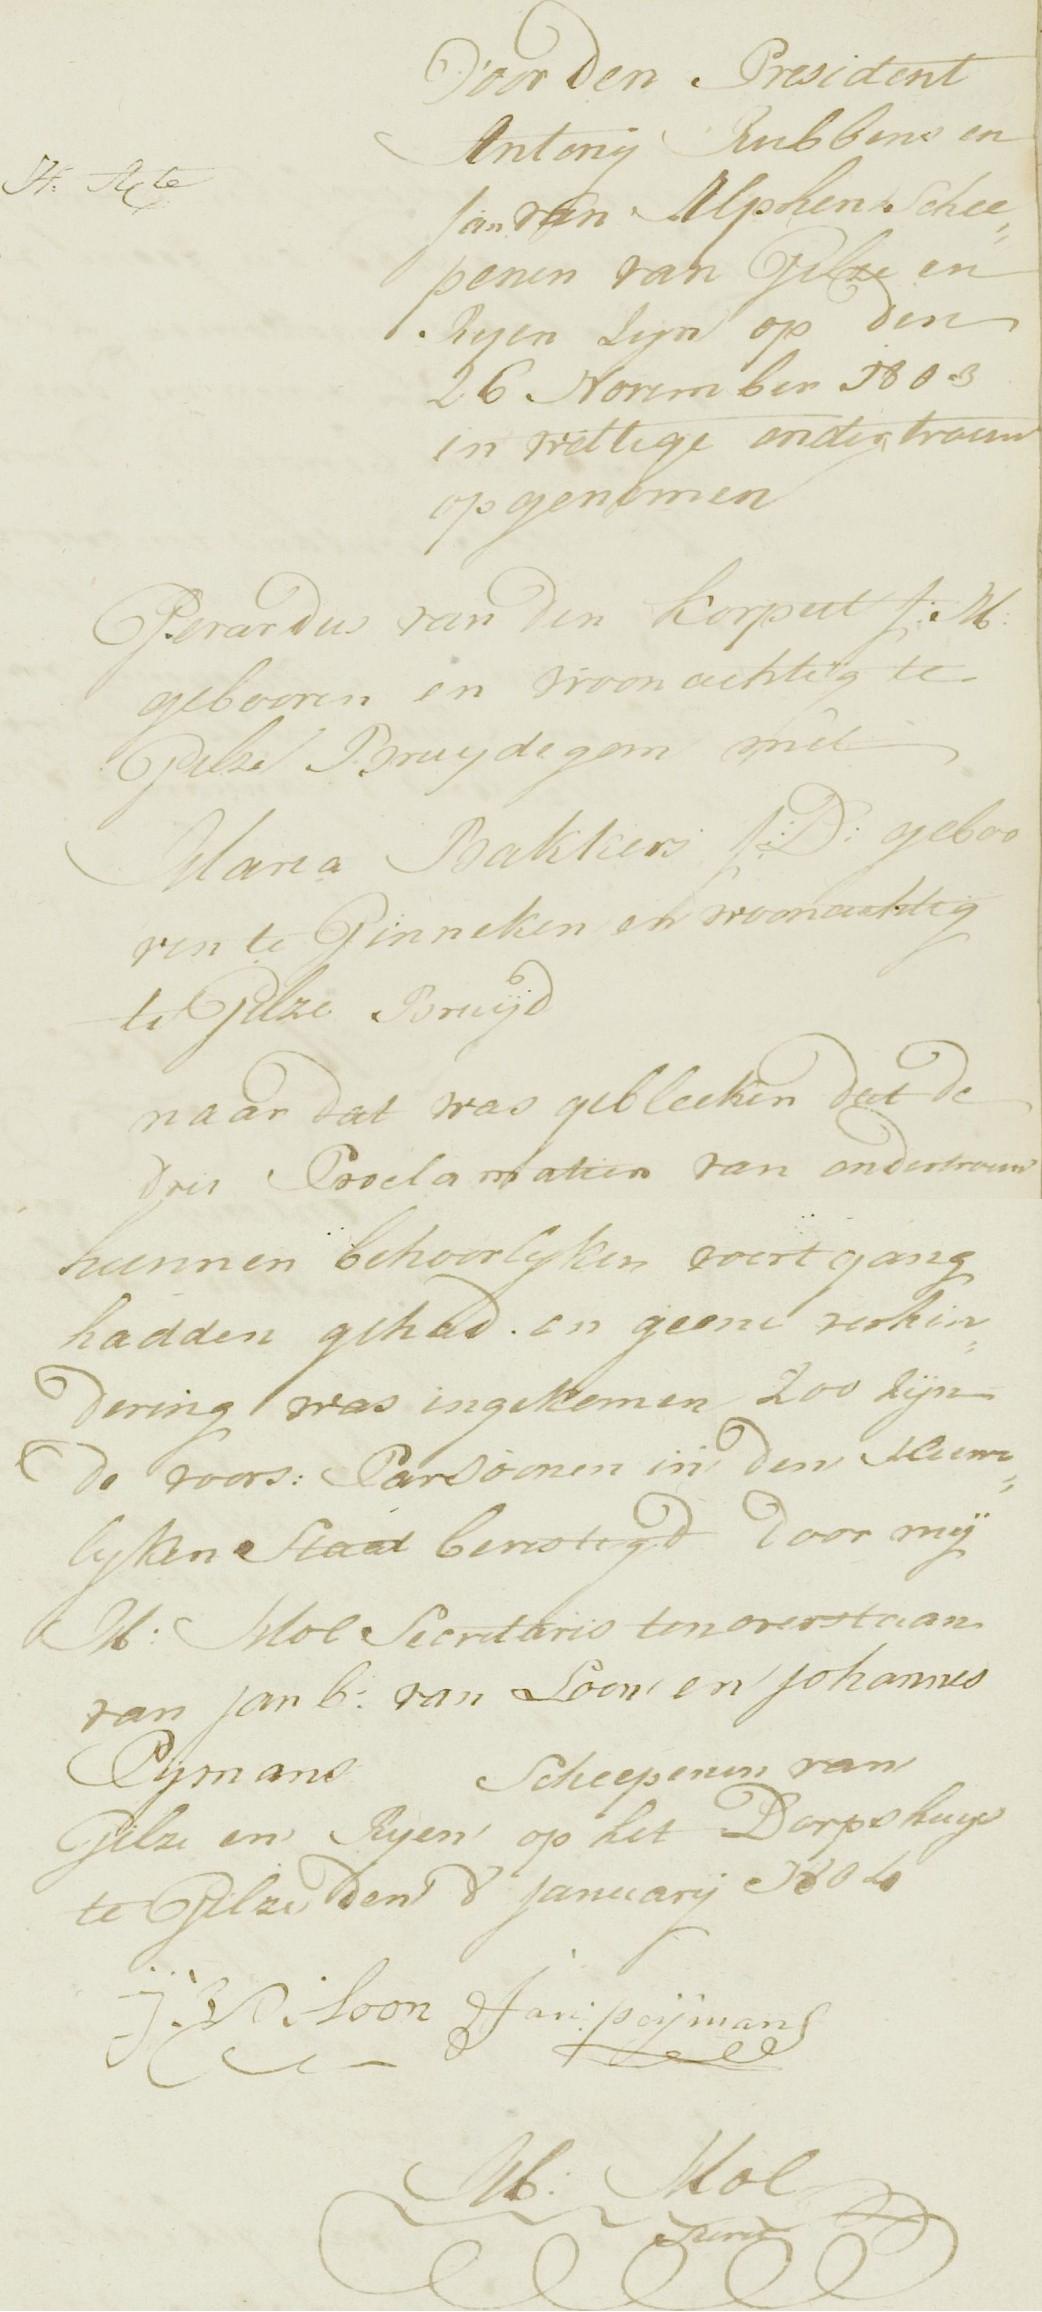 Voor den President
Antonij Rubbens en
Jan van Alphen Schee„
penen van Gilze en
Ryen Zyn op den
26 November 1803
in wettige ondertrouw
opgenomen
Gerardus van den Korput J: M:
gebooren en woonachtig te
Gilze Bruydegom met
Maria Bakkers J: D: geboo
ren te Ginneken en woonachtig
te Gilze Bruijd
naar dat was gebleeken dat de
drie Proclamatien van ondertrouw
hunnen behoorlyken voortgang
hadden gehad en geene verhin„
dering was ingekomen Zoo Zijn
de voors: Parsoonen in den Huuw„
lyken Staat bevestigd door mij
M: Mol Secretaris ten overstaan
van Jan b: van Loon en Johannes
Pymans Scheepenen van
Gilze en Ryen op het Dorpshuys
te Gilze den 8 January 1804
J: V: Loon Jan: peijmans
M: Mol
Secrets